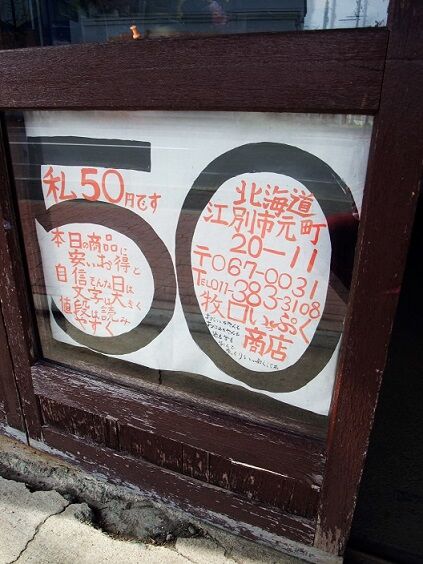 50
私50円です
本日の商品に
安い、お得と
自信そんな日は
文字は大きく
値段は読み
やすく
北海道
江別市元町
20-11
〒067-0031
TEL011-383-3108
商店